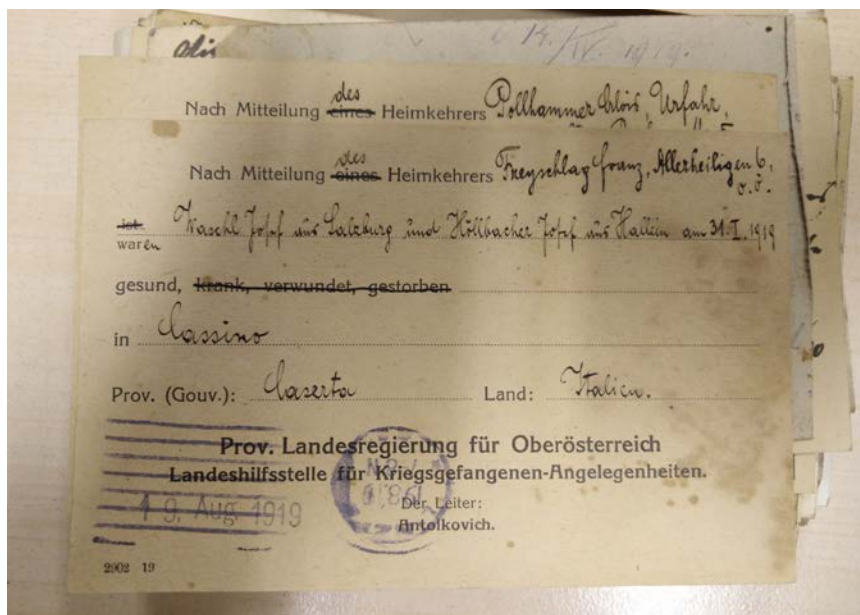 14./IV. 1919.
des
Nach Mitteilung eines Heimkehrers Pollhammer Alois, Urfahr,
des
Nach Mitteilung eines Heimkehrers Freyschlag Franz, Allerheiligen 6,
O.Ö.
ist Waschl Josef aus Salzburg und Höllbacher Josef aus Hallein am 31.I.1919
waren
gesund, krank, verwundet, gestorben
in Cassino
Prov. (Gouv.): Caserta Land: Italien.
Prov. Landesregierung für Oberösterreich
Landeshilfsstelle für Kriegsgefangenen-Angelegenheiten.
Der Leiter:
Antolkovich.
19. Aug. 1919
2902 19